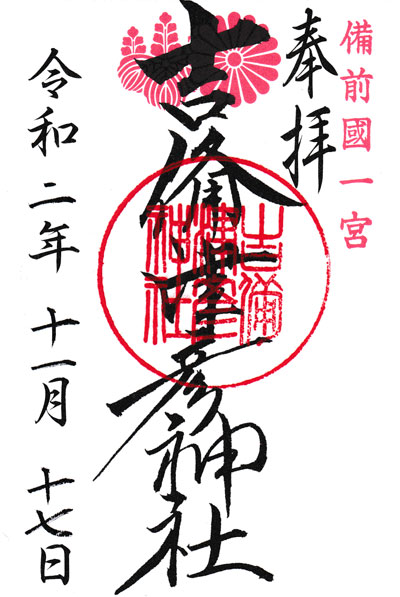 備前國一宮
奉拝
吉備津彦神社
吉備
津彦
神社
令和二年 十一月 十七日